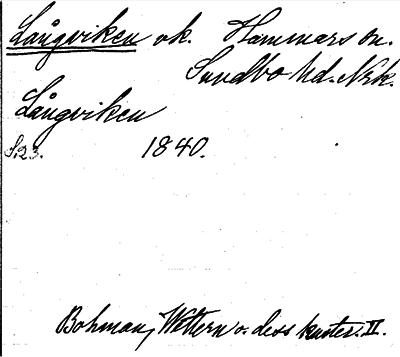 Långviken vk. Hammars sn.
Sundbo hd. Nrk.
Långviken
S. 23. 1840.
Bohman, Wettern o. dess kuster. II.